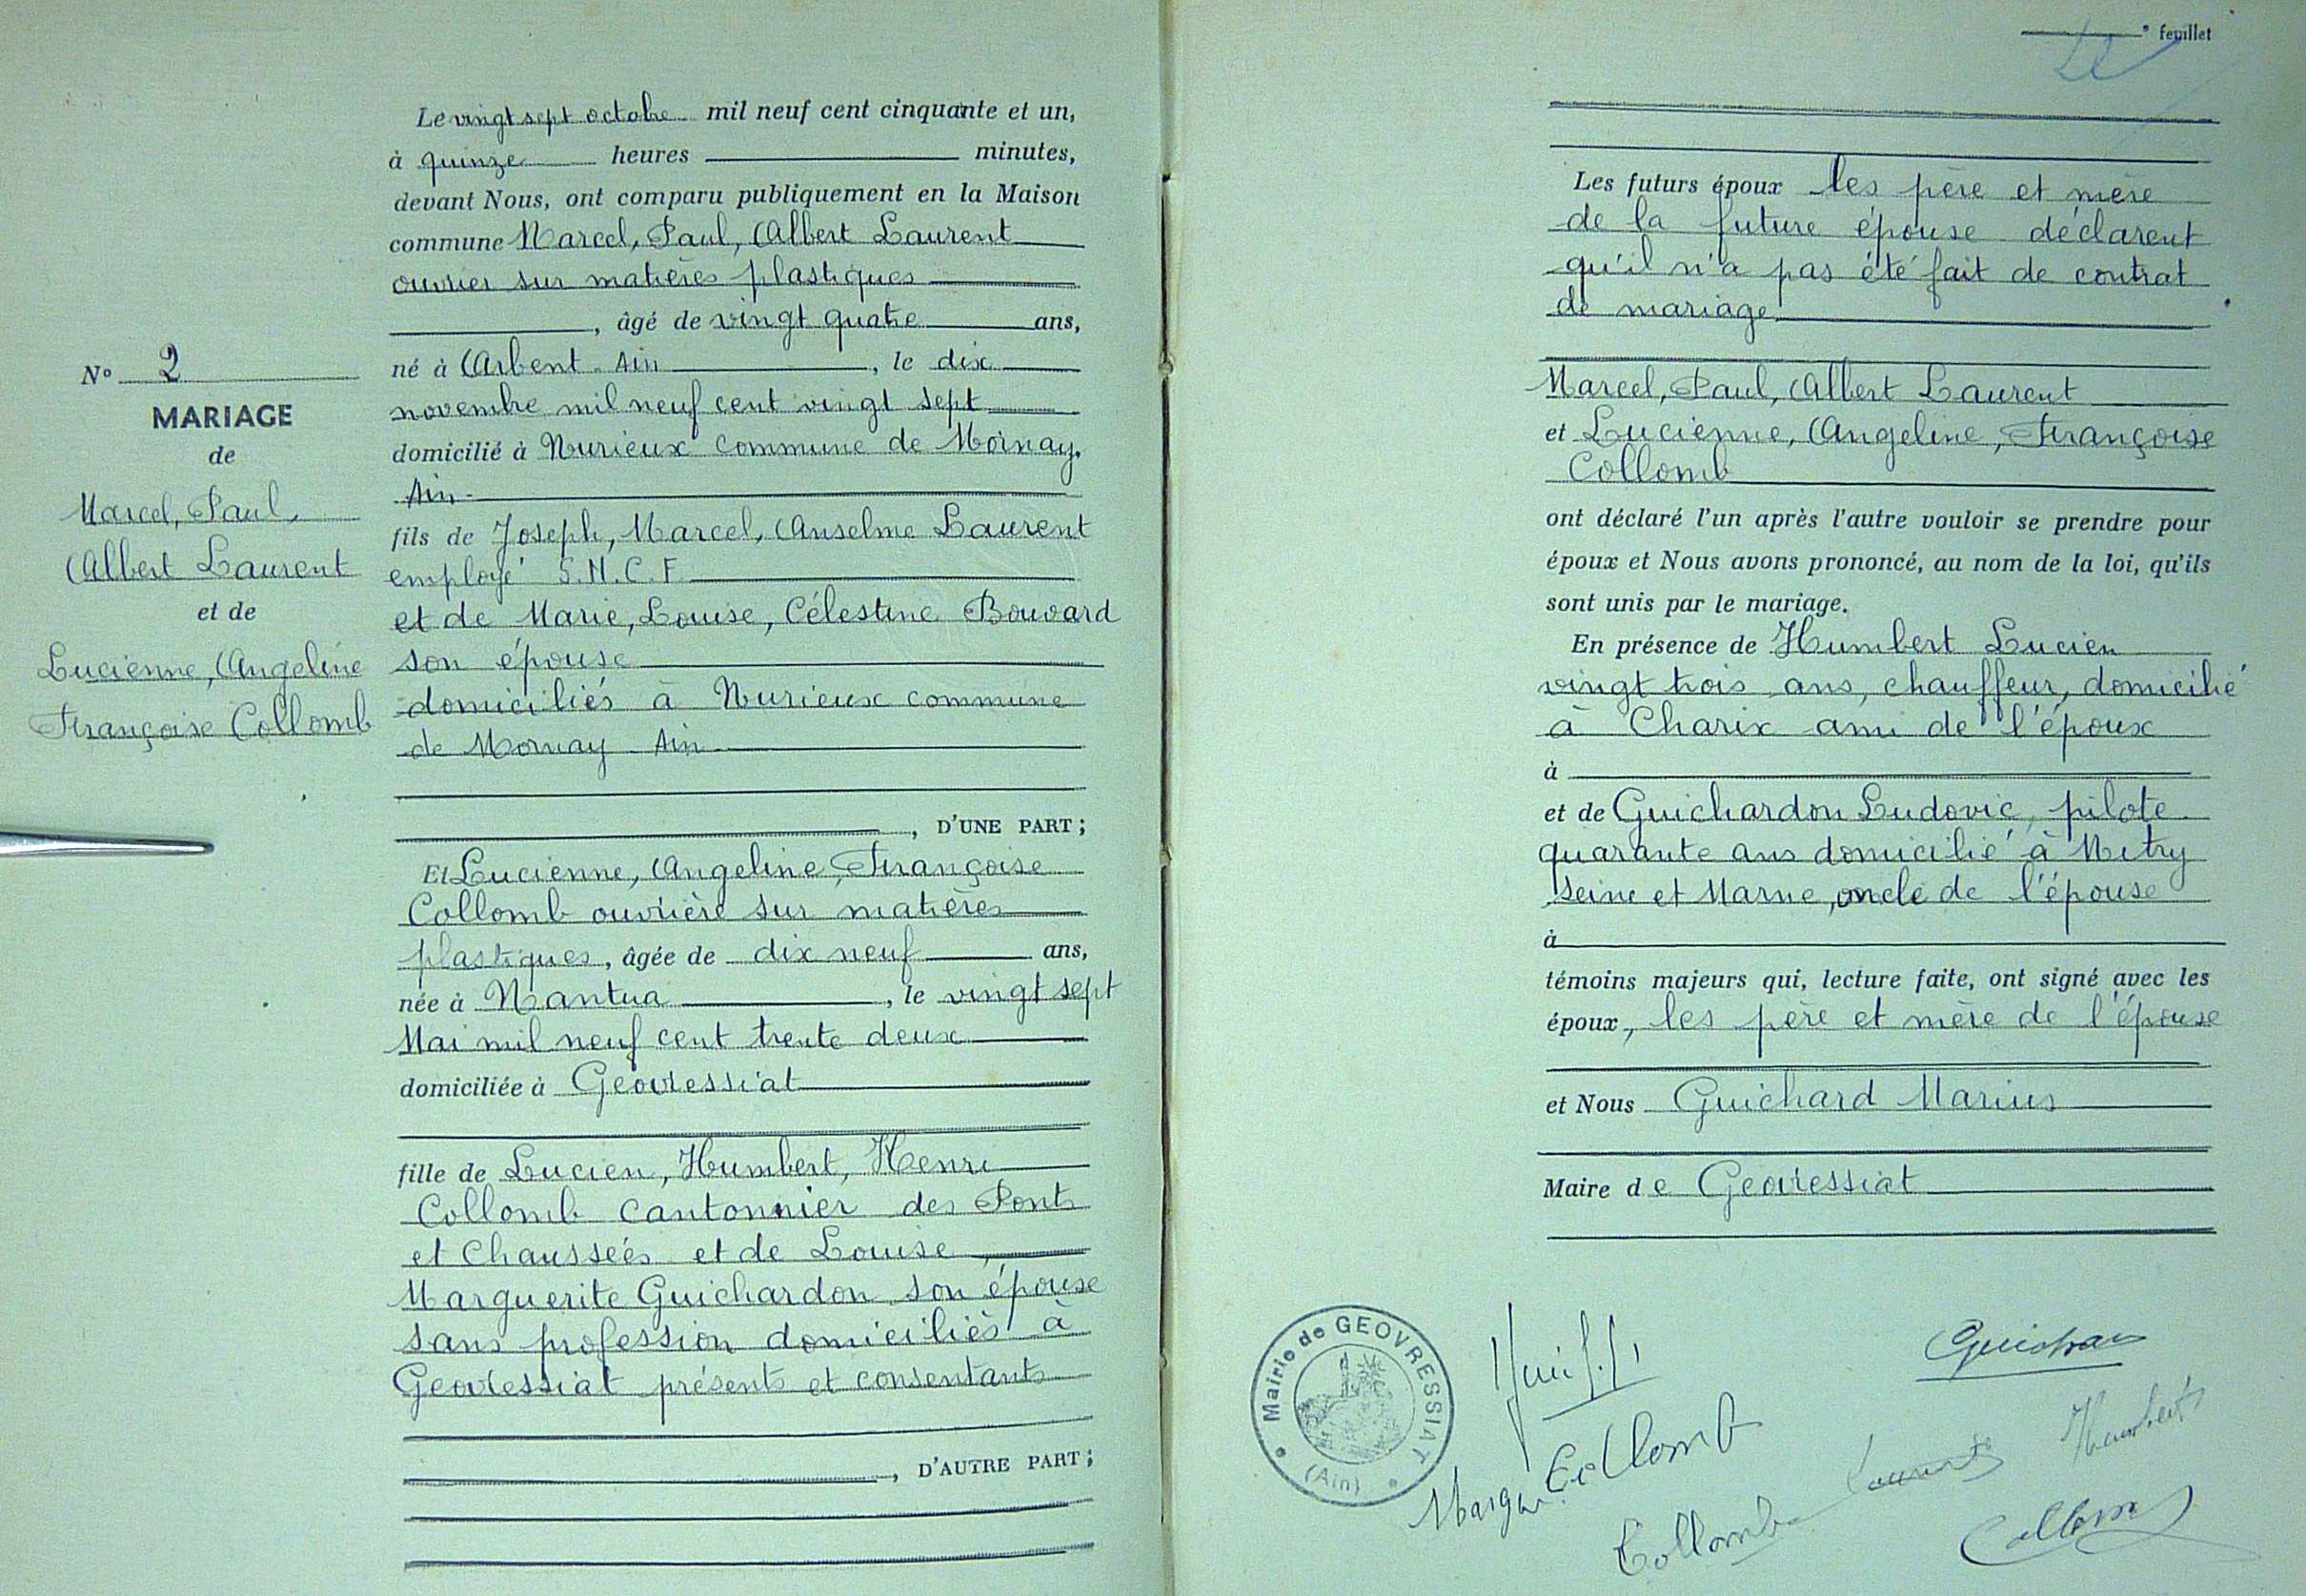 N° 2
MARIAGE
de
Marcel, Paul,
Albert Laurent
et de
Lucienne, Angeline
Françoise Collomb
Le vingt sept octobre mil neuf cent cinquante et un,
à quinze heures minutes,
devant Nous, ont comparu publiquement en la Maison
commune Marcel, Paul, Albert Laurent
ouvrier sur matières plastiques
, âgé de vingt quatre ans,
né à Arbent. Ain, le dix
novembre mil neuf cent vingt sept
domicilié à Nurieux commune de Mornay.
Ain.
fils de Joseph, Marcel, Anselme Laurent
employé S.N.C.F.
et de Marie, Louise, Célestine Bouvard
son épouse
domiciliés à Nurieux commune
de Mornay Ain
, D'UNE PART ;
Et Lucienne, Angeline, Françoise
Collomb ouvrière sur matières
plastiques, âgée de dix neuf ans,
née à Nantua, le vingt sept
Mai mil neuf cent trente deux
domiciliée à Geovressiat
fille de Lucien, Humbert, Henri
Collomb cantonnier des Ponts
et Chaussées et de Louise,
Marguerite Guichardon son épouse
sans profession domiciliés à
Geovressiat présents et consentants
, D'AUTRE PART ;
° feuillet
Les futurs époux les père et mère
de la future épouse déclarent
qu'il n'a pas été fait de contrat
de mariage.
Marcel, Paul, Albert Laurent
et Lucienne, Angeline, Françoise
Collomb
ont déclaré l'un après l'autre vouloir se prendre pour
époux et Nous avons prononcé, au nom de la loi, qu'ils
sont unis par le mariage.
En présence de Humbert Lucien
vingt trois ans, chauffeur, domicilié
à Charix ami de l'époux
à
et de Guichardon Ludovic, pilote
quarante ans domicilié à Mitry
Seine et Marne, oncle de l'épouse
à
témoins majeurs qui, lecture faite, ont signé avec les
époux, les père et mère de l'épouse
et Nous Guichard Marius
Maire de Geovressiat
Mairie de GEOVRESSIAT
(Ain)
Collomb
Laurent
Humbert
Collomb
Collomb